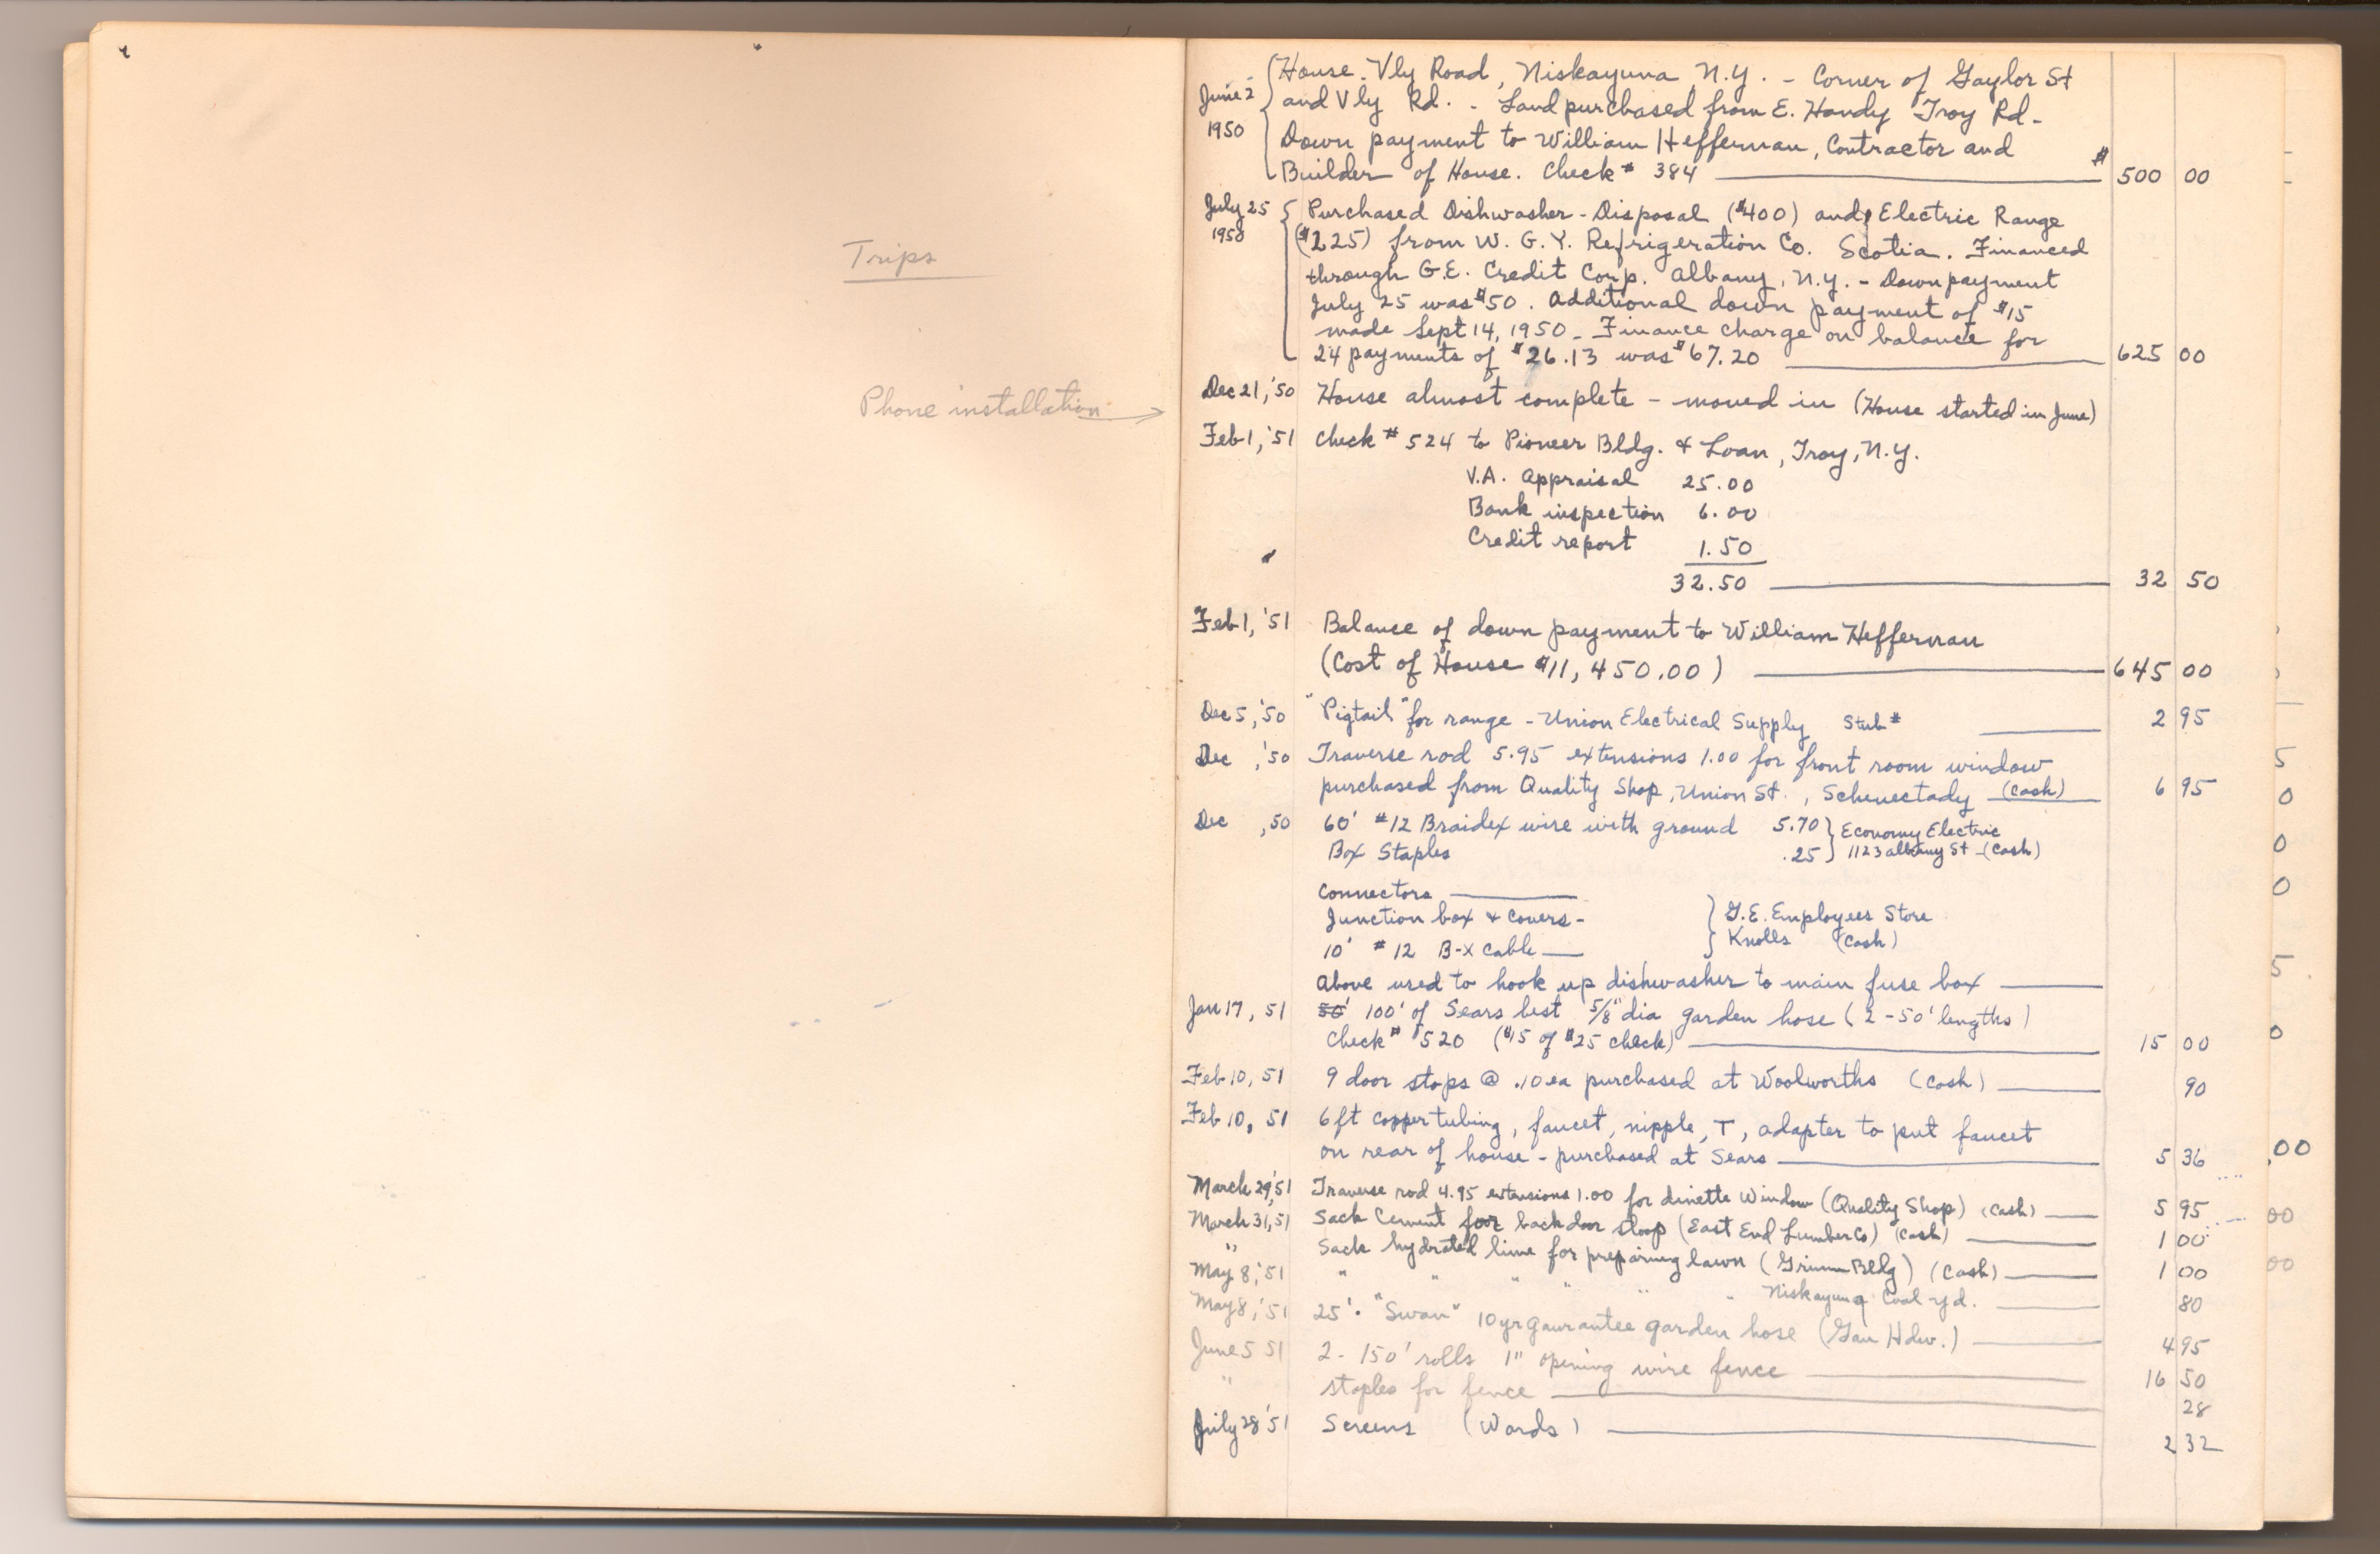 Trips
Phone installation
June 2 1950 House. Vly Road, Niskayuna, N.Y. - Corner of Gaylor St
and Vly Rd. - Land purchased from E. Handy Troy Rd -
Down payment to William Heffernan, Contractor and
Builder of House. Check # 384 $ 500 00
July 25 1950 Purchased Dishwasher - Disposal ($400) and Electric Range
($225) from W. G. Y. Refrigeration Co. Scotia. Financed
through G.E. Credit Corp. Albany, N.Y. - Down payment
July 25 was $50. Additional down payment of $15
made Sept 14, 1950 - Finance charge on balance for
24 payments of $26.13 was $67.20 625 00
Dec 21, '50 House almost complete - moved in (House started in June)
Feb 1, '51 Check # 524 to Pioneer Bldg. & Loan, Troy, N.Y.
V.A. Appraisal 25.00
Bank inspection 6.00
Credit report 1.50
32.50 32 50
Feb 1, '51 Balance of down payment to William Heffernan
(Cost of House $11,450.00) 645 00
Dec 5, '50 "Pigtail" for range - Union Electrical Supply Stub # 2 95
Dec , '50 Traverse rod 5.95 extensions 1.00 for front room window
purchased from Quality Shop, Union St., Schenectady (cash) 6 95
Dec , 50 60' #12 Braidex wire with ground 5.70 Economy Electric
Box Staples .25 1123 Albany St - (Cash)
Connectors
Junction box & covers - G.E. Employees Store
10' #12 B-X cable Knolls (Cash)
Above used to hook up dishwasher to main fuse box
Jan 17, 51 50' 100' of Sears best 5/8" dia garden hose (2 - 50' lengths)
Check # 520 ($15 of $25 check) 15 00
Feb 10, 51 9 door stops @ .10 ea purchased at Woolworths (Cash) 90
Feb 10, 51 6 ft copper tubing, faucet, nipple, T, adapter to put faucet
on rear of house - purchased at Sears 5 36
March 29, '51 Traverse rod 4.95 extensions 1.00 for dinette Window (Quality Shop) (Cash) 5 95
March 31, 51 Sack Cement for back door stoop (East End Lumber Co) (Cash) 1 00
" Sack hydrated lime for preparing lawn (Grimm Bldg) (Cash) 1 00
May 8, '51 " " " " " " Niskayuna Coal yd. 80
May 8, '51 25'. "Swan" 10 yr gaurantee garden hose (Gau Hdw.) 4 95
June 5 51 2 - 150' rolls 1" opening wire fence 16 50
" staples for fence 28
July 28 '51 Screens (Wards) 2 32